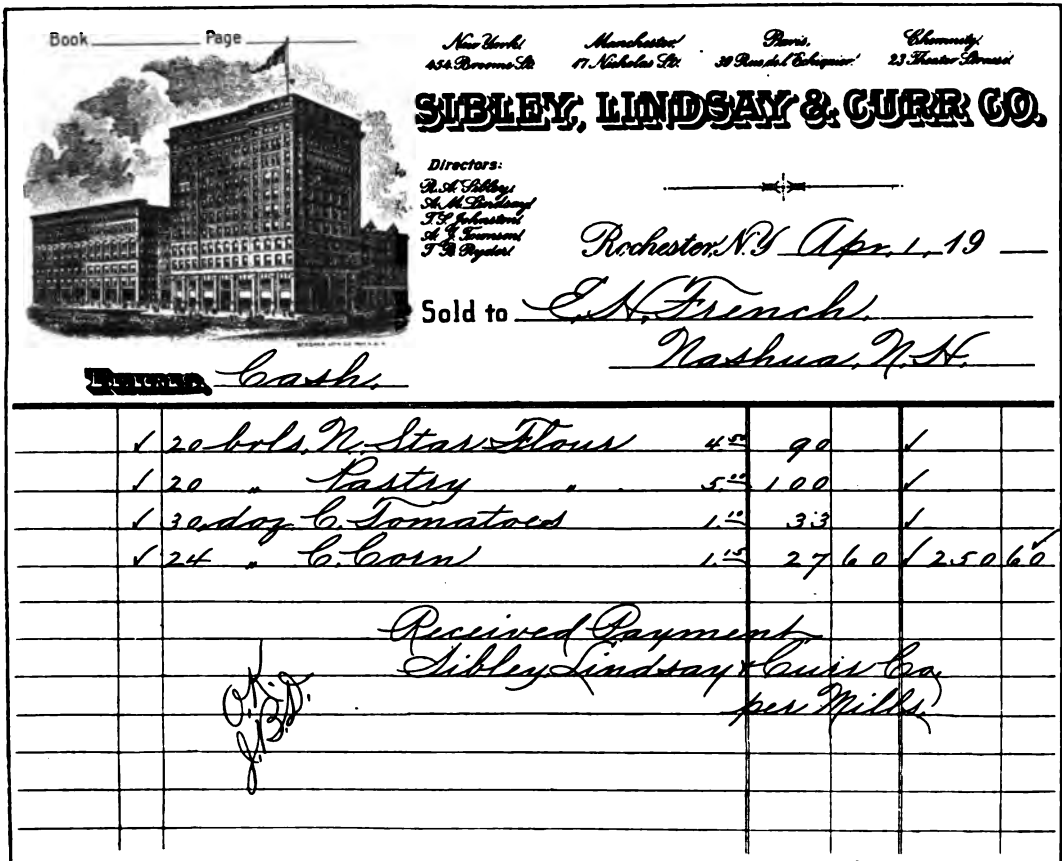 Book Page
New York, Manchester, Paris, Chemnitz,
454 Broome St. 17 Nicholas St. 30 Rue de l'Echiquier. 23 Theater Strasse
SIBLEY, LINDSAY & CURR CO.
Directors:
R. A. Sibley
A. M. Lindsay
T. S. Johnston
A. J. Townson
T. B. Ryder
Rochester, N.Y. Apr. 1, 19
Sold to E. H. French.
Nashua, N.H.
Terms, Cash.
✓ 20 bbls. N. Star Flour 4.50 90 ✓
✓ 20 " Pastry " 5.00 100 ✓
✓ 30 doz C. Tomatoes 1.10 33 ✓
✓ 24 " C. Corn 1.15 27 60 ✓ 250 60 ✓
Received Payment
Sibley Lindsay & Curr Co.
per Mills
O.K.
J.B.D.